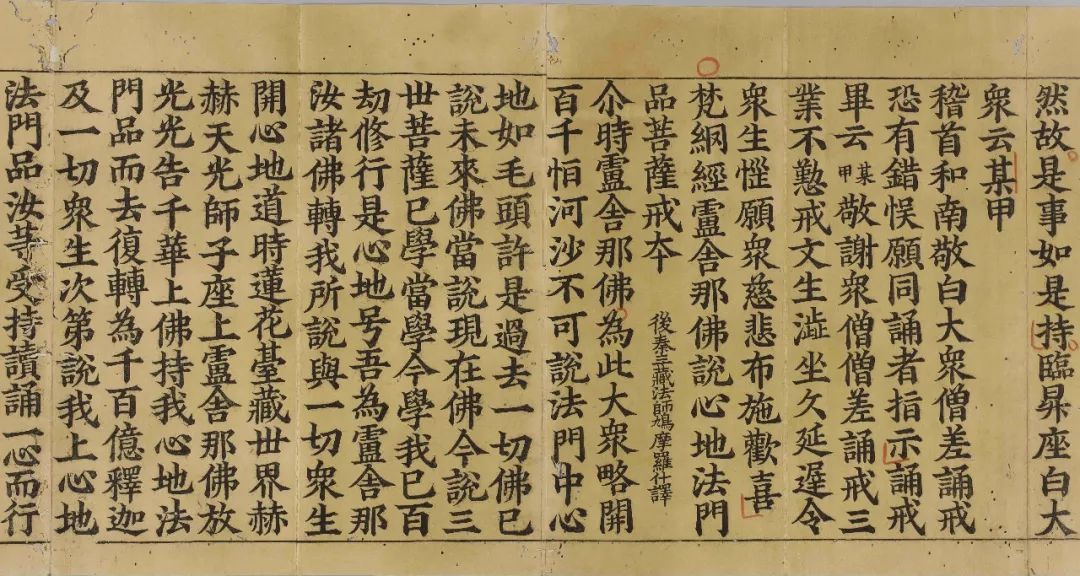 然故是事如是持臨昇座白大
衆云某甲
稽首和南敬白大衆僧差誦戒
恐有錯悮願同誦者指示誦戒
畢云某甲敬謝衆僧僧差誦戒三
業不懃戒文生澁坐久延遲令
衆生㤥願衆慈悲布施歡喜
梵網經盧舍那佛說心地法門
品菩薩戒夲 後秦三藏法師鳩摩羅什譯
尒時盧舍那佛為此大衆略開
百千恒河沙不可說法門中心
地如毛頭許是過去一切佛已
說未來佛當說現在佛今說三
世菩薩已學當學今學我已百
劫修行是心地号吾為盧舍那
汝諸佛轉我所說與一切衆生
開心地道時蓮花臺藏世界赫
赫天光師子座上盧舍那佛放
光光告千華上佛持我心地法
門品而去復轉為千百億釋迦
及一切衆生次第說我上心地
法門品汝等受持讀誦一心而行